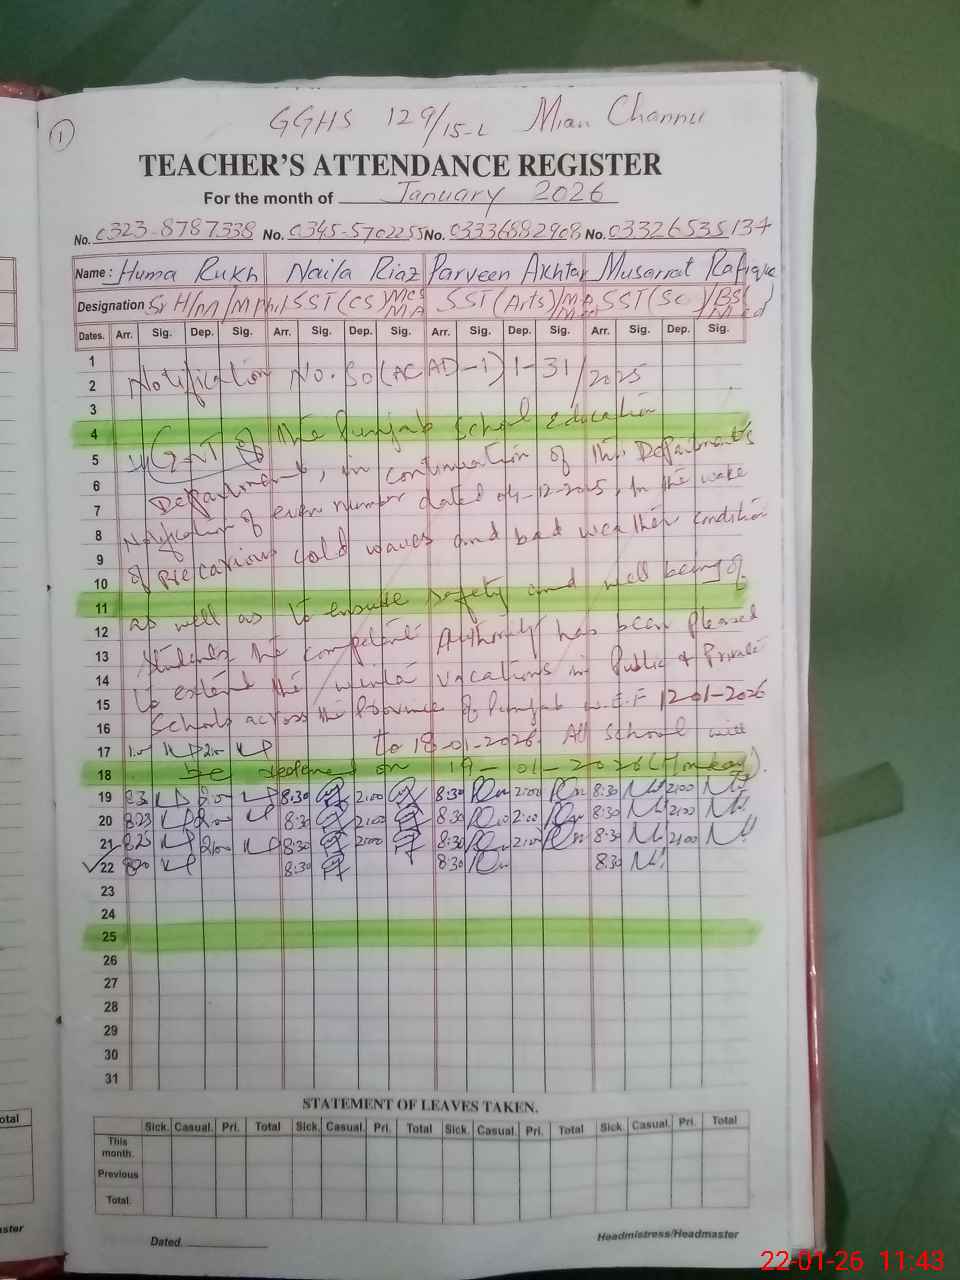 1
GGHS 129/15-L Mian Channu
TEACHER'S ATTENDANCE REGISTER
For the month of January 2026
No. 0323-8787338 No. 0345-5702255 No. 03336882908 No. 03326535134
Name: Huma Rukh Naila Riaz Parveen Akhtar Musarrat Rafique
Designation SrH/M/MPhil SST(CS) MCS MA SST (Arts)/MA SST(Sc)/BS Med
Dates. Arr. Sig. Dep. Sig. Arr. Sig. Dep. Sig. Arr. Sig. Dep. Sig. Arr. Sig. Dep. Sig.
1
2 Notification No. SO(ACAD-1)1-31/2025
3
4 GNT of the Punjab School Education
5 Department, in continuation of this Department's
6
7 Notification of even number dated 04-12-2025, In the wake
8
9 of precarious cold waves and bad weather condition
10
11 as well as to ensure safety and well being of
12
13 students the competent Authority has been pleased
14 to extend the winter vacations in Public & Private
15
16 schools across the Province of Punjab w.E.F 12-01-2026
17 to 18-01-2026. All School will
18 be reopened on 19-01-2026 (Monday).
19 8:30 2:00 8:30 2:00 8:30 2:00
20 8:30 2:00 8:30 2:00 8:30 2:00
21 825 2:00 8:30 2:00 8:30 2:00 8:30 2:00
22 8:30 8:30 8:30
23
24
25
26
27
28
29
30
31
STATEMENT OF LEAVES TAKEN.
Sick. Casual. Pri. Total Sick. Casual. Pri. Total Sick. Casual. Pri. Total Sick. Casual. Pri. Total
This month.
Previous
Total.
Dated
Headmistress/Headmaster
otal
ster
22-01-26 11:43